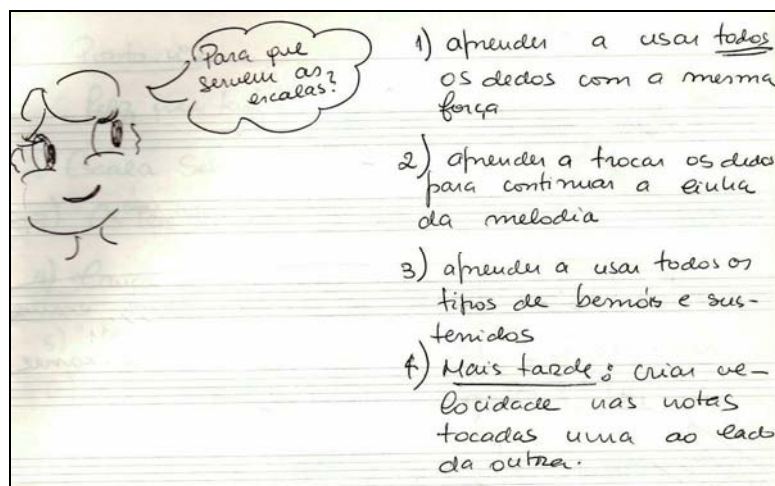 Para que
servem as
escalas?
1) aprender a usar todos
os dedos com a mesma
força
2) aprender a trocar os dedos
para continuar a linha
da melodia
3) aprender a usar todos os
tipos de bemóis e sus-
tenidos
4) Mais tarde: criar ve-
locidade nas notas
tocadas uma ao lado
da outra.